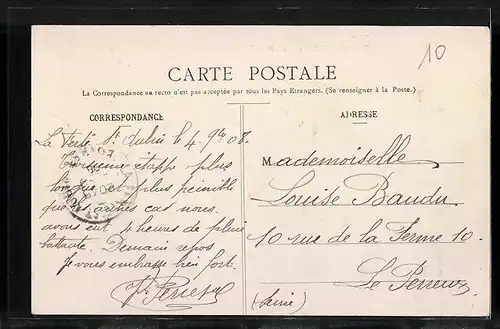 10
CARTE POSTALE
La Correspondance au recto n'est pas acceptée par tous les Pays Etrangers. (Se renseigner à la Poste.)
CORRESPONDANCE
La Ferté St Aubin le 4 9bre 08.
Troisième étape plus
longue et plus pénible
que les autres car nous
avons eut 4 heures de pluie
battante. Demain repos
Je vous embrasse bien fort.
ADRESSE
Mademoiselle
Louise Baudu
10 rue de la Ferme 10.
Le Perreux
(Seine)